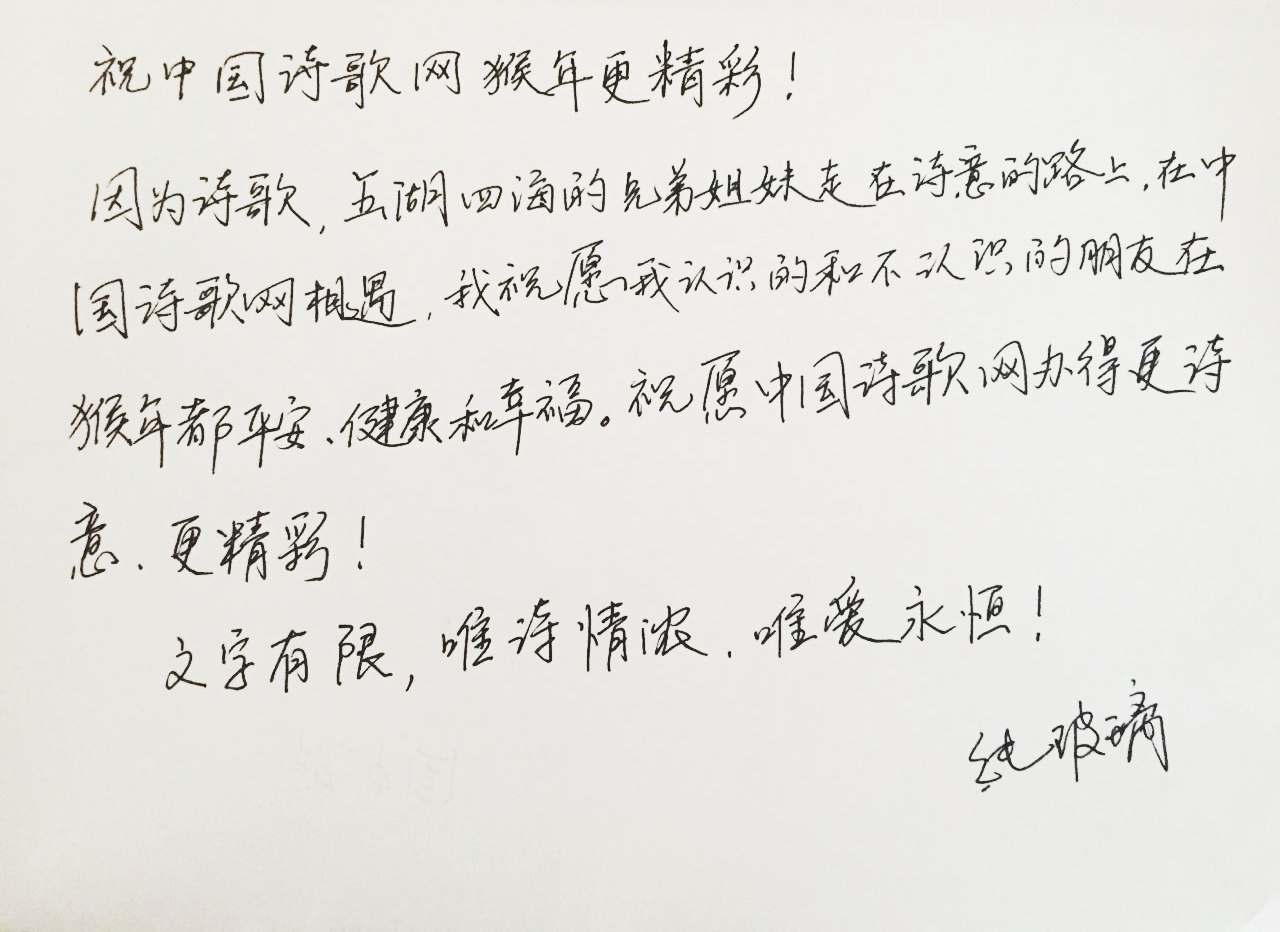 祝中国诗歌网猴年更精彩！
因为诗歌，五湖四海的兄弟姐妹走在诗意的路上，在中
国诗歌网相遇，我祝愿我认识的和不认识的朋友在
猴年都平安、健康和幸福。祝愿中国诗歌网办得更诗
意、更精彩！
文字有限，唯诗情浓，唯爱永恒！
纯玻璃